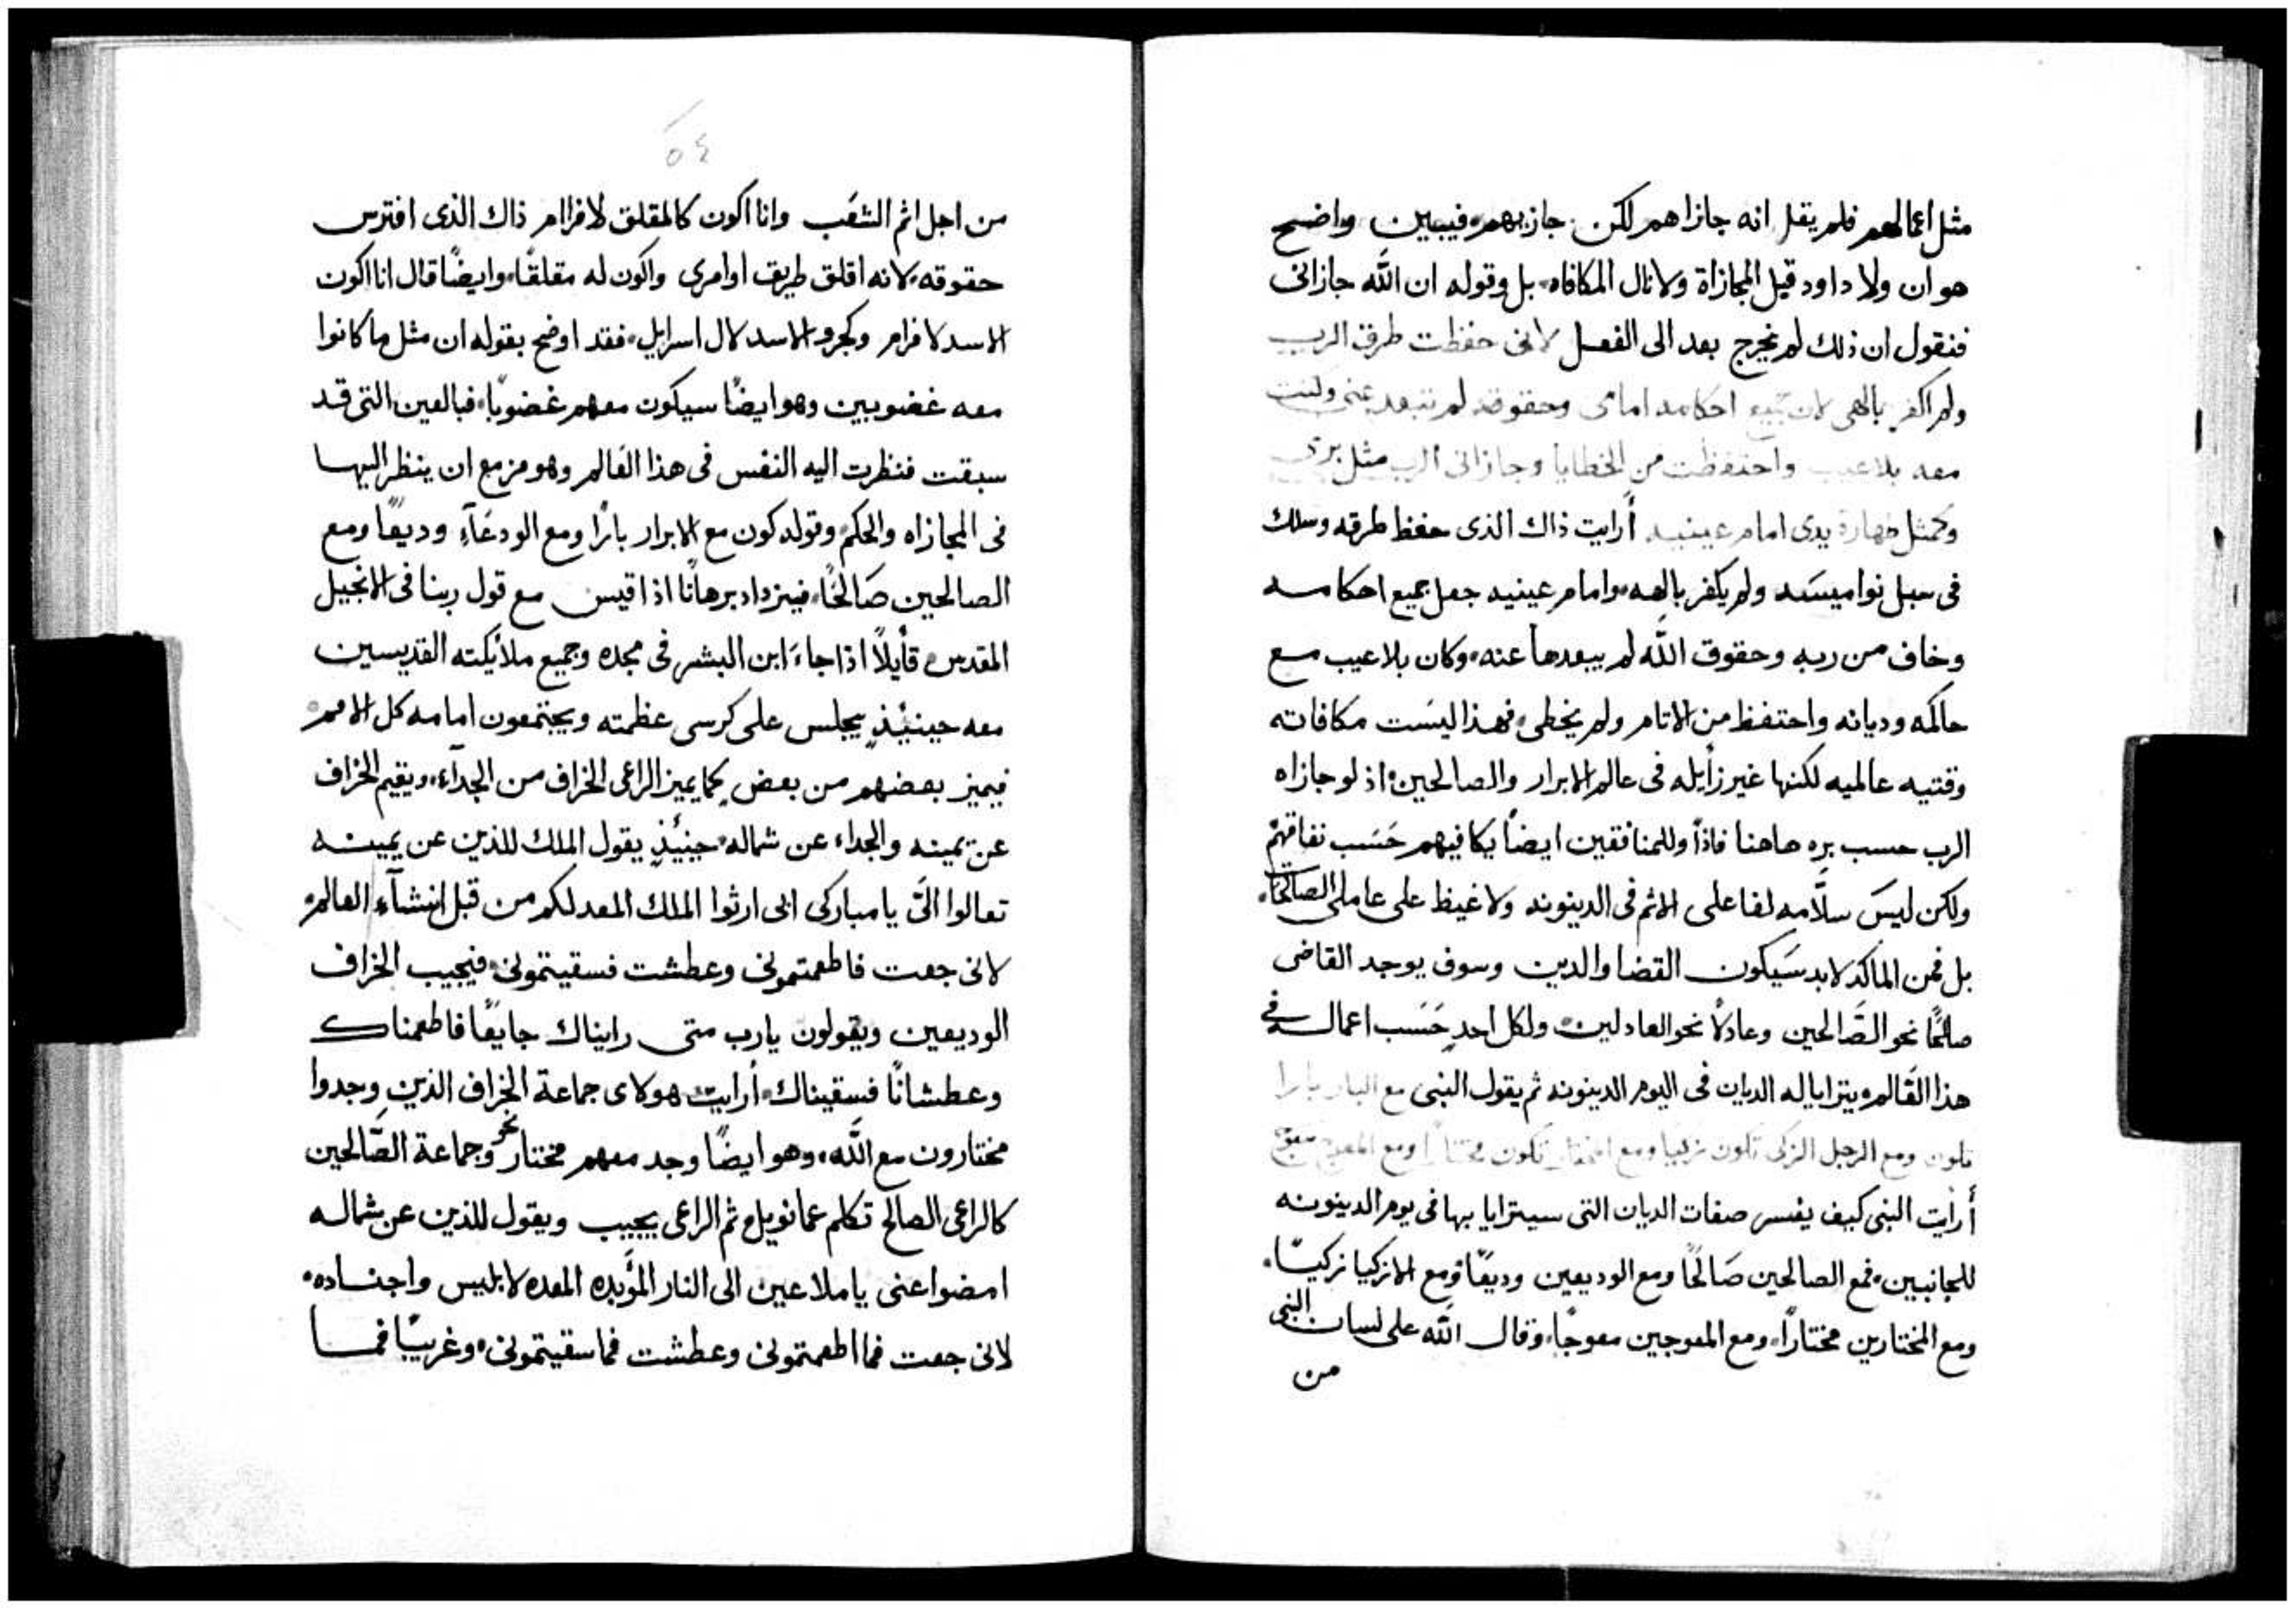 مثل اعمالهم فلم يقل انه جازاهم لكن جازيهم فيبين واضح
هو ان ولا داود قبل المجازاة ولا نال المكافاه بل وقوله ان الله جازانى
فنقول ان ذلك لم يخرج بعد الى الفعل لانى حفظت طرق الرب
ولم اكفر بالهى لان جميع احكامه امامى وحقوقه لم تبعد عنى وكنت
معه بلا عيب واحتفظت من الخطايا وجازانى الرب مثل برى
وكمثل طهارة يدى امام عينيه أرايت ذاك الذى حفظ طرقه وسلك
فى سبل نواميسه ولم يكفر بالهه وامام عينيه جعل جميع احكامه
وخاف من ربه وحقوق الله لم يبعدها عنه وكان بلا عيب مع
حاكمه وديانه واحتفظ من الاثام ولم يخطى فهذا ليست مكافاته
وقتيه عالميه لكنها غير زايله فى عالم الابرار والصالحين اذ لو جازاه
الرب حسب بره هاهنا فاذًا وللمنافقين ايضًا يكافيهم حسب نفاقهم
ولكن ليس سلامه لفاعلى الاثم فى الدينونه ولا غيظ على عاملى الصالحات
بل فمن الماكد لابد سيكون القضا والدين وسوف يوجد القاضى
صالحًا نحو الصالحين وعادلاً نحو العادلين ولكل احدٍ حسب اعماله فى
هذا العالم ويترايا له الديان فى اليوم الدينونه ثم يقول النبى مع البار بارا
تكون ومع الرجل الزكى تكون زكيا ومع المختار تكون مختارًا ومع المعوج معوج
أرايت النبى كيف يفسر صفات الديان التى سيترايا بها فى يوم الدينونه
للجانبين فمع الصالحين صالحًا ومع الوديعين وديعًا ومع الازكيا زكيًا
ومع المختارين مختارًا ومع المعوجين معوجًا وقال الله على لسان النبى
من
٥٤
من اجل اثم الشعب وانا اكون كالمقلق لافرام ذاك الذى افترس
حقوقه لانه اقلق طريق اوامرى واكون له مقلقًا وايضًا قال انا اكون
الاسد لافرام وكجرو الاسد لال اسرايل فقد اوضح بقوله ان مثل ما كانوا
معه غضوبين وهو ايضًا سيكون معهم غضوبًا فبالعين التى قد
سبقت فنظرت اليه النفس فى هذا العالم وهو مزمع ان ينظر اليها
فى المجازاه والحكم وقوله كون مع الابرار بارًا ومع الودعآء وديعًا ومع
الصالحين صالحًا فيزداد برهانًا اذا قيس مع قول ربنا فى الانجيل
المقدس قايلاً اذا جاء ابن البشر فى مجده وجميع ملايكته القديسين
معه حينيذٍ يجلس على كرسى عظمته ويجتمعون امامه كل الامم
فيميز بعضهم من بعض كما يميز الراعى الخراف من الجدآء ويقيم الخراف
عن يمينه والجداء عن شماله حينئذٍ يقول الملك للذين عن يمينه
تعالوا الىّ يا مباركى ابى ارثوا الملك المعد لكم من قبل انشآء العالم
لانى جعت فاطعمتمونى وعطشت فسقيتمونى فيجيب الخراف
الوديعين ويقولون يارب متى رايناك جايعًا فاطعمناك
وعطشانًا فسقيناك أرايت هولاى جماعة الخراف الذين وجدوا
مختارون مع الله وهو ايضًا وجد معهم مختار نحو وجماعة الصّالحين
كالراعى الصالح تكلم عمانويل ثم الراعى يجيب ويقول للذين عن شماله
امضوا عنى يا ملاعين الى النار المؤبده المعده لابليس واجناده
لانى جعت فما اطعمتمونى وعطشت فما سقيتمونى وغريبًا فما